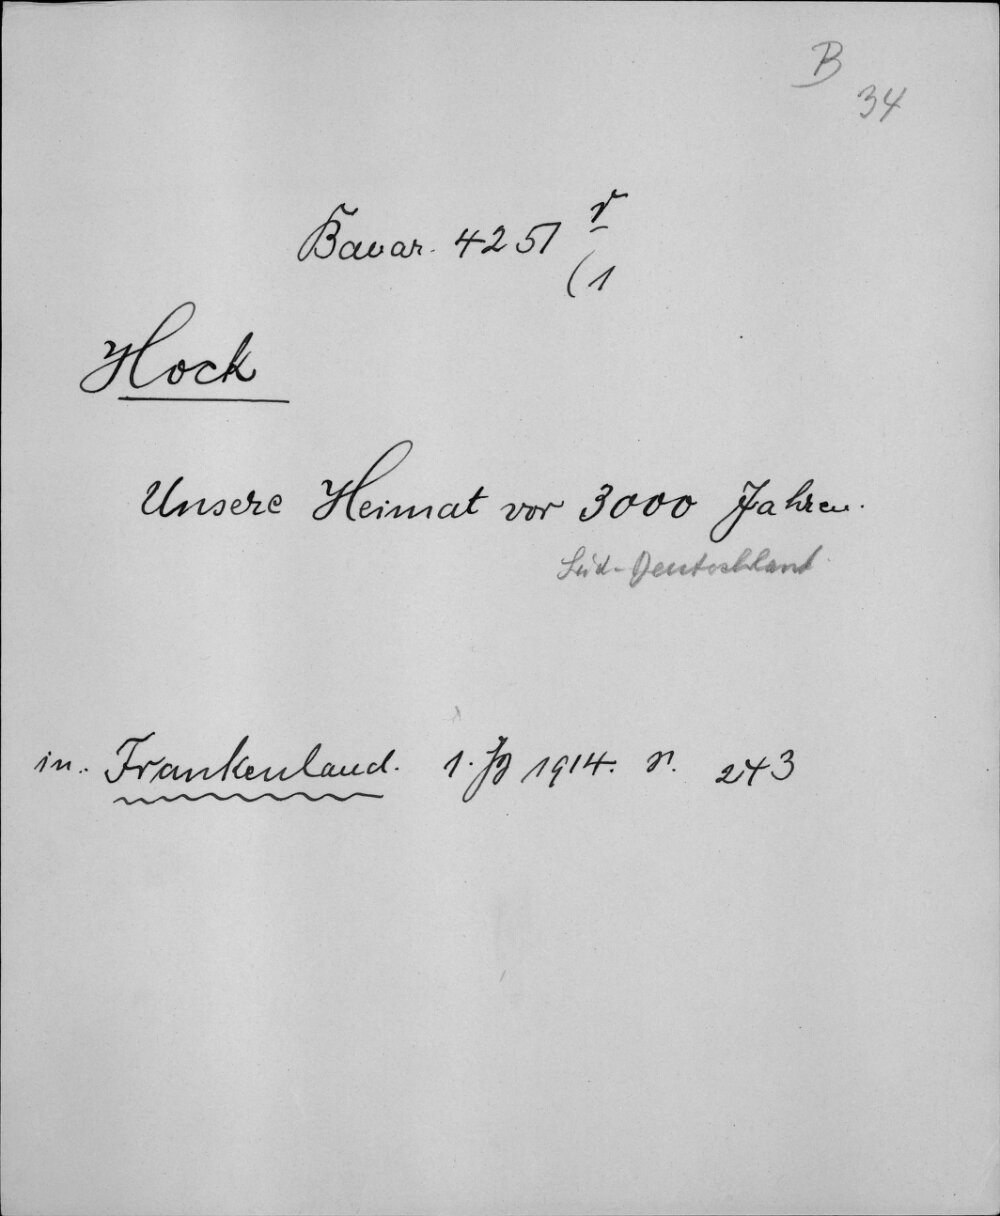 B
34
Bavar. 4251 r
(1
Hock
Unsere Heimat vor 3000 Jahren.
Süd-Deutschland
in. Frankenland. 1. Jg 1914. 243